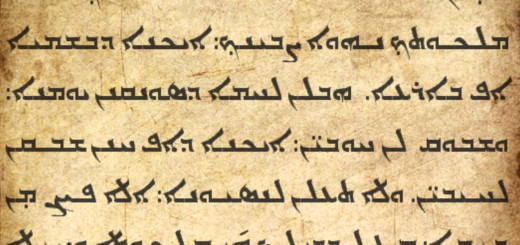 ܡܠܟܘܬܟ ܢܗܘܐ ܨܒܝܢܟ: ܐܝܟܢܐ ܕܒܫܡܝܐ
ܐܦ ܒܐܪܥܐ. ܗܒܠܢ ܠܚܡܐ ܕܣܘܢܩܢܢ ܝܘܡܢܐ:
ܘܫܒܘܩ ܠܢ ܚܘܒ̈ܝܢ: ܐܝܟܢܐ ܕܐܦ ܚܢܢ ܫܒܩܢ
ܠܚܝܒ̈ܝܢ. ܘܠܐ ܬܥܠܢ ܠܢܣܝܘܢܐ: ܐܠܐ ܦܨܢ ܡܢ